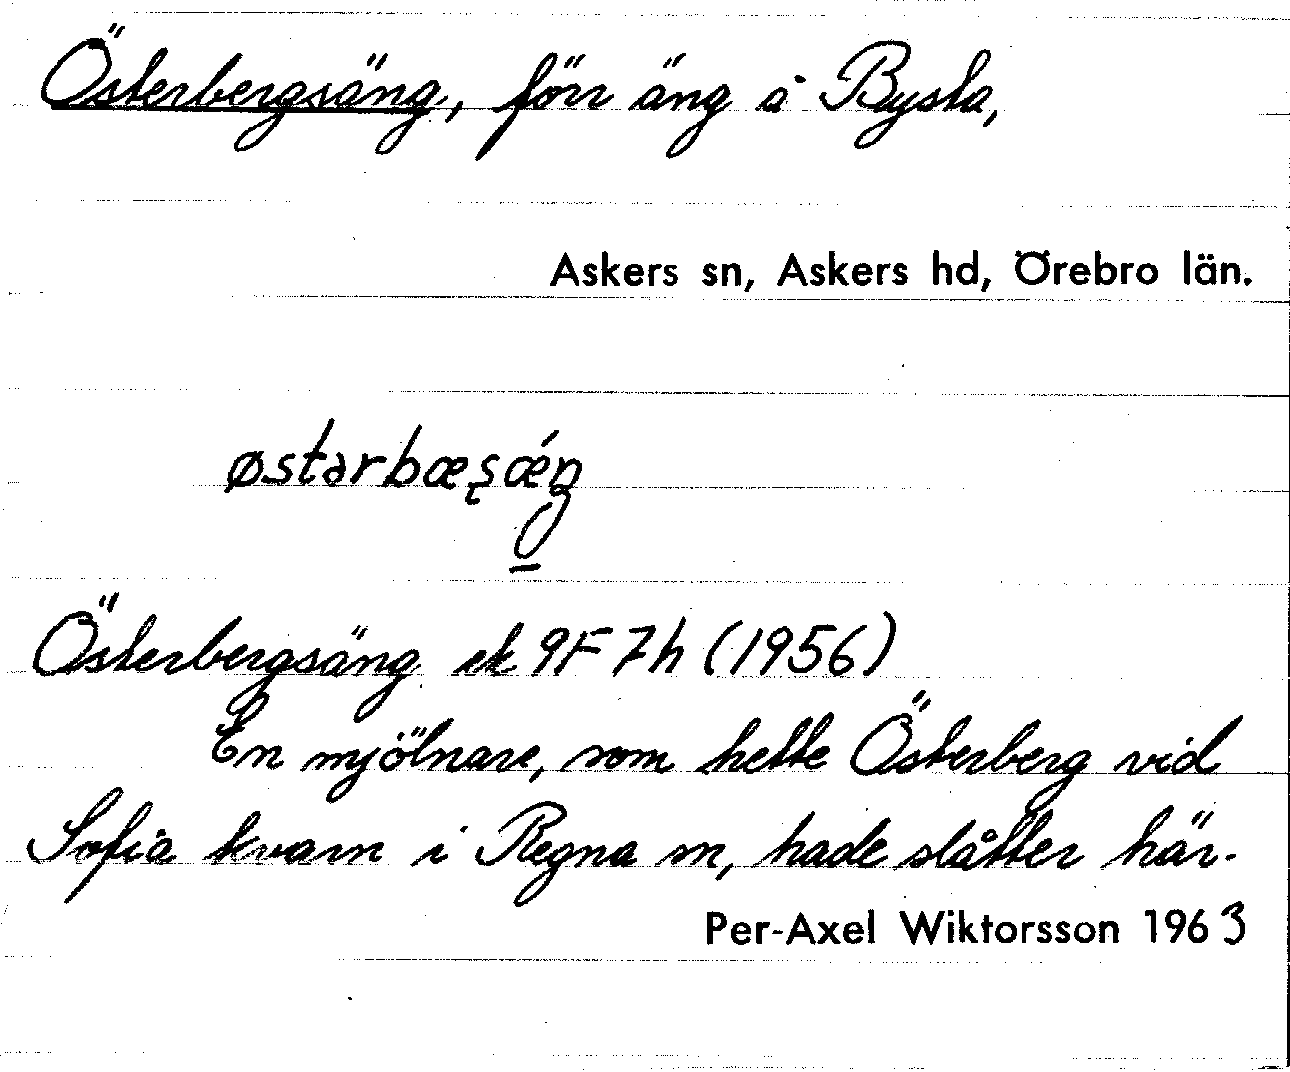 Österbergsäng, förr äng å Bysta,
Askers sn, Askers hd, Örebro län.
østərbæʂǽŋ
Österbergsäng ek 9F 7h (1956)
En mjölnare, som hette Österberg vid
Sofia kvarn i Regna sn, hade slåtter här.
Per-Axel Wiktorsson 1963